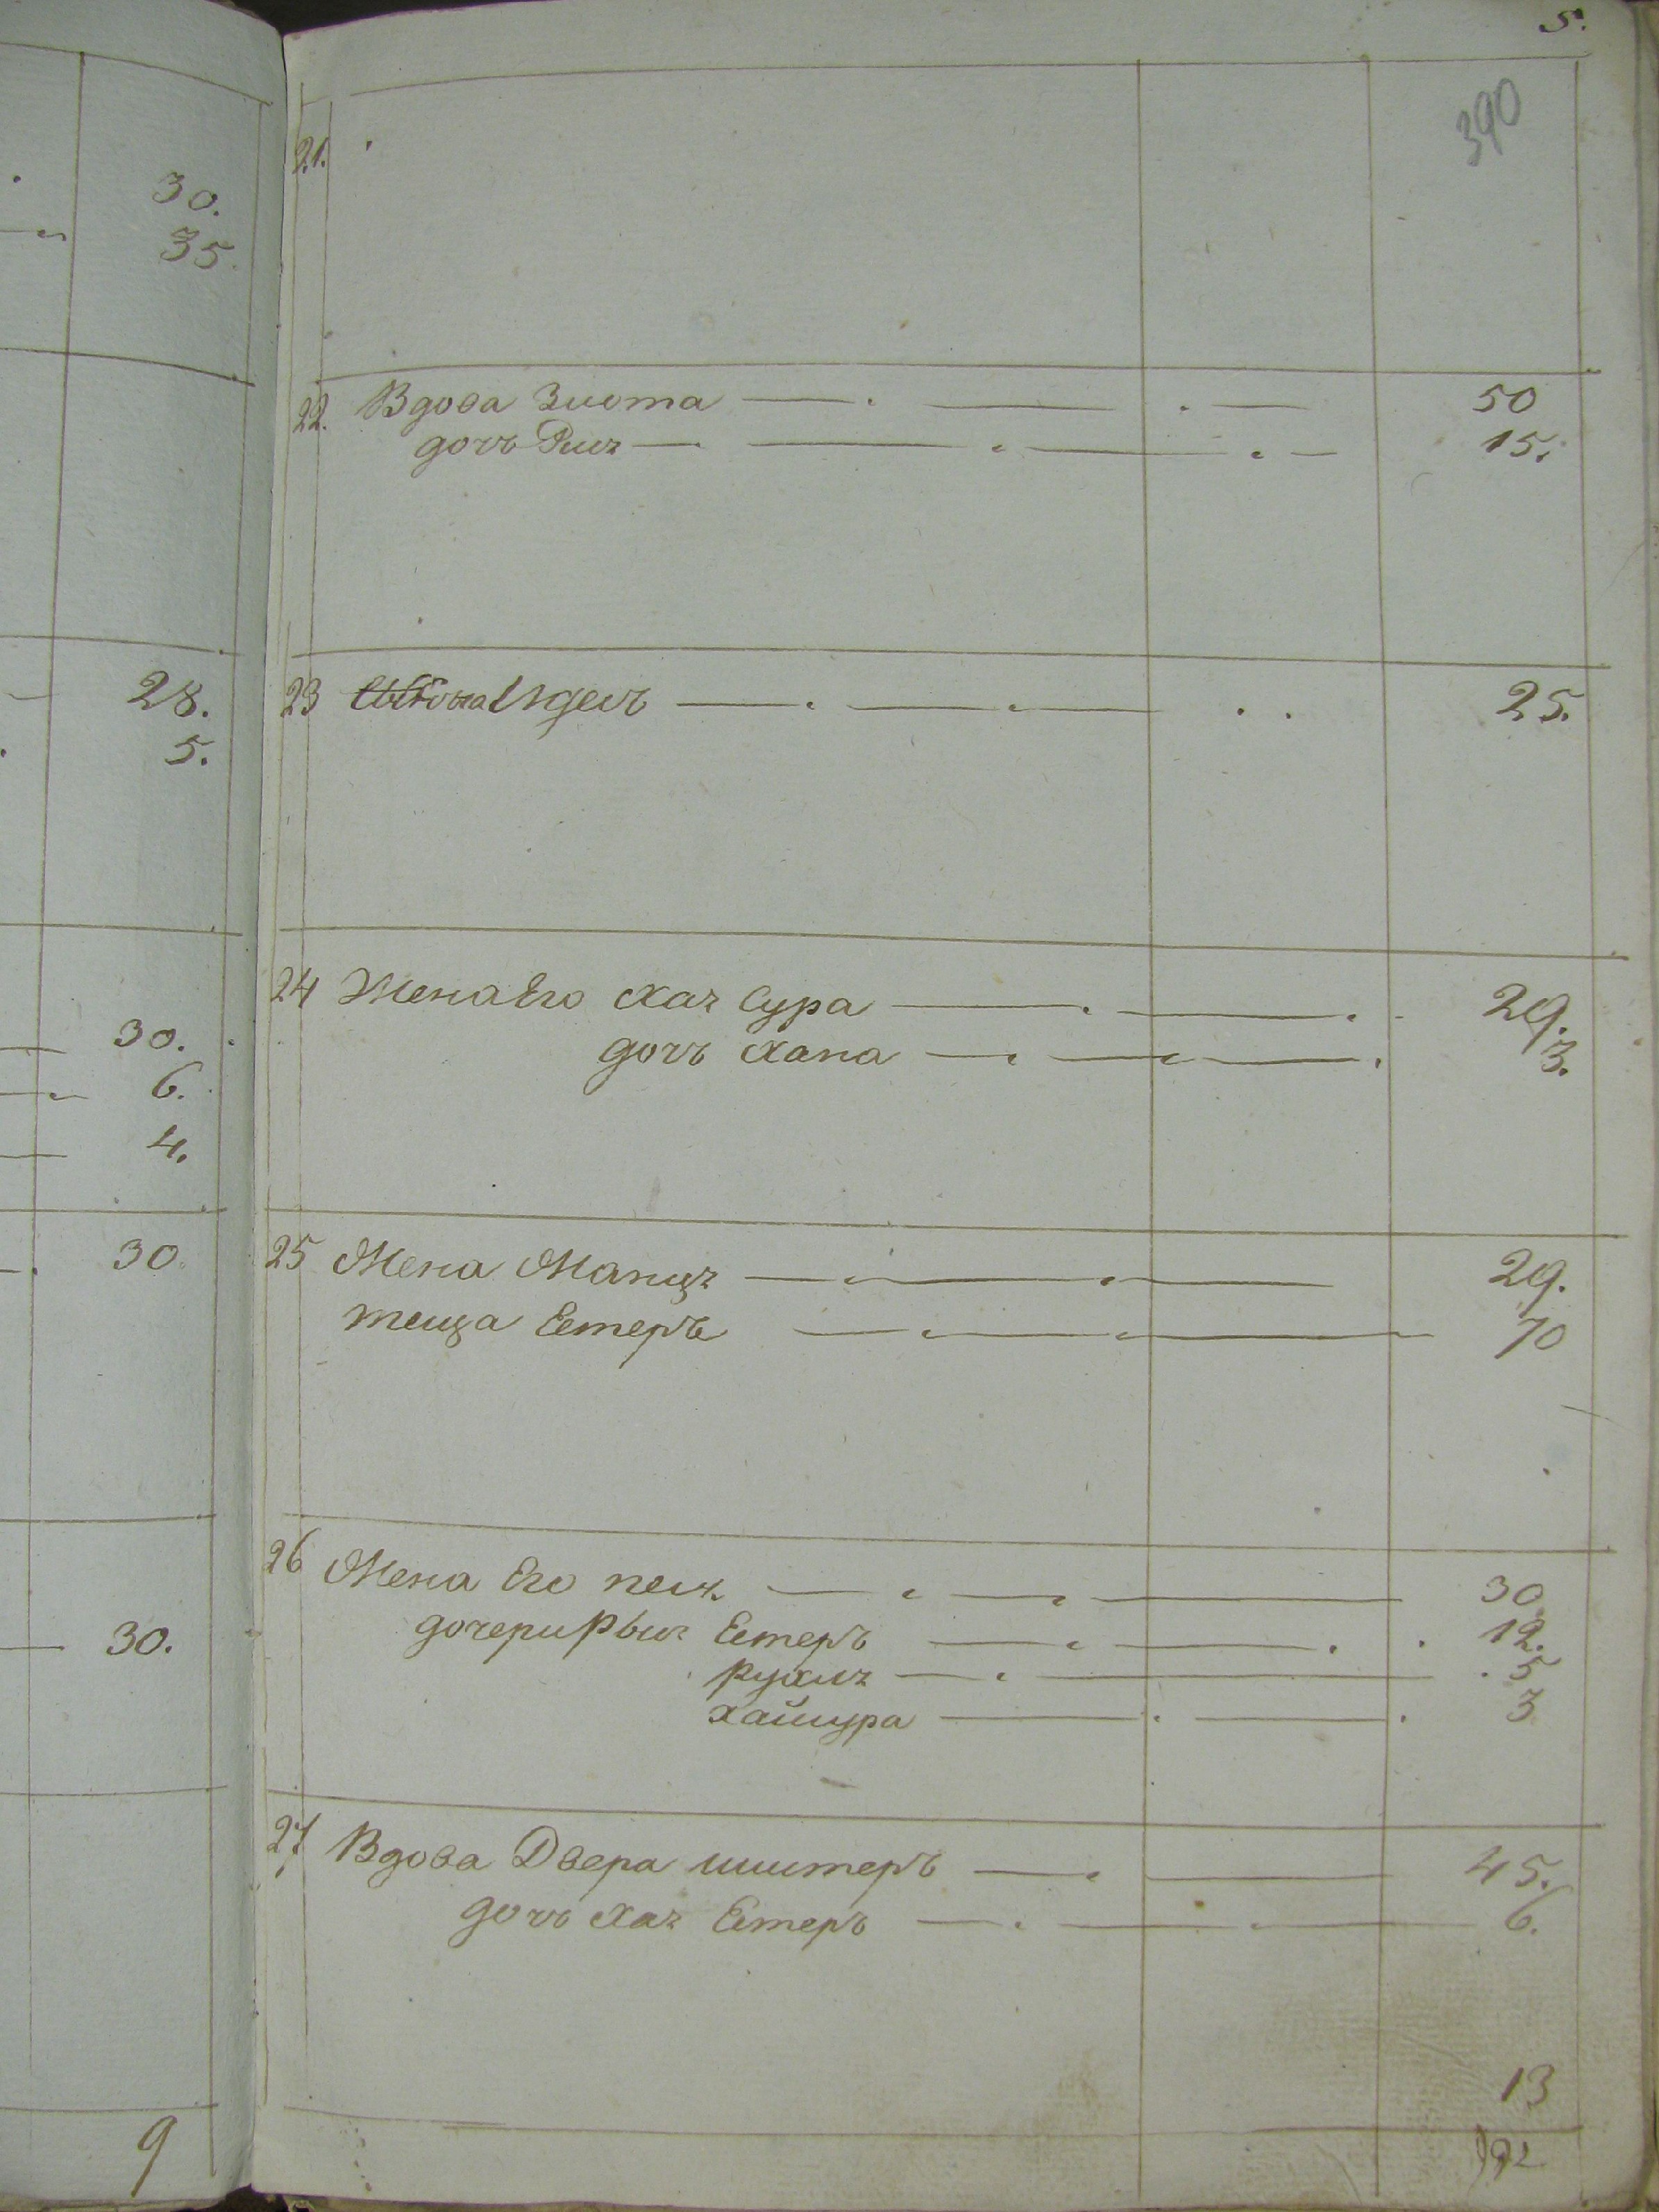 30.
35.
28.
5.
30.
6.
4.
30
30.
9
5.
390
21.
22. Вдова Злота 50
дочь Рилъ 15.
23 Идель 25.
24 Жена Его Хаѣ Сура 29.
дочь Хана 3.
25 Жена Манцъ 29.
теща Естеръ 70
26 Жена Его 30
дочери Рыш Естеръ 12.
Рухлъ 5
Хайшура 3
27 Вдова Двера 45.
дочь Хаѣ Естеръ 6.
13